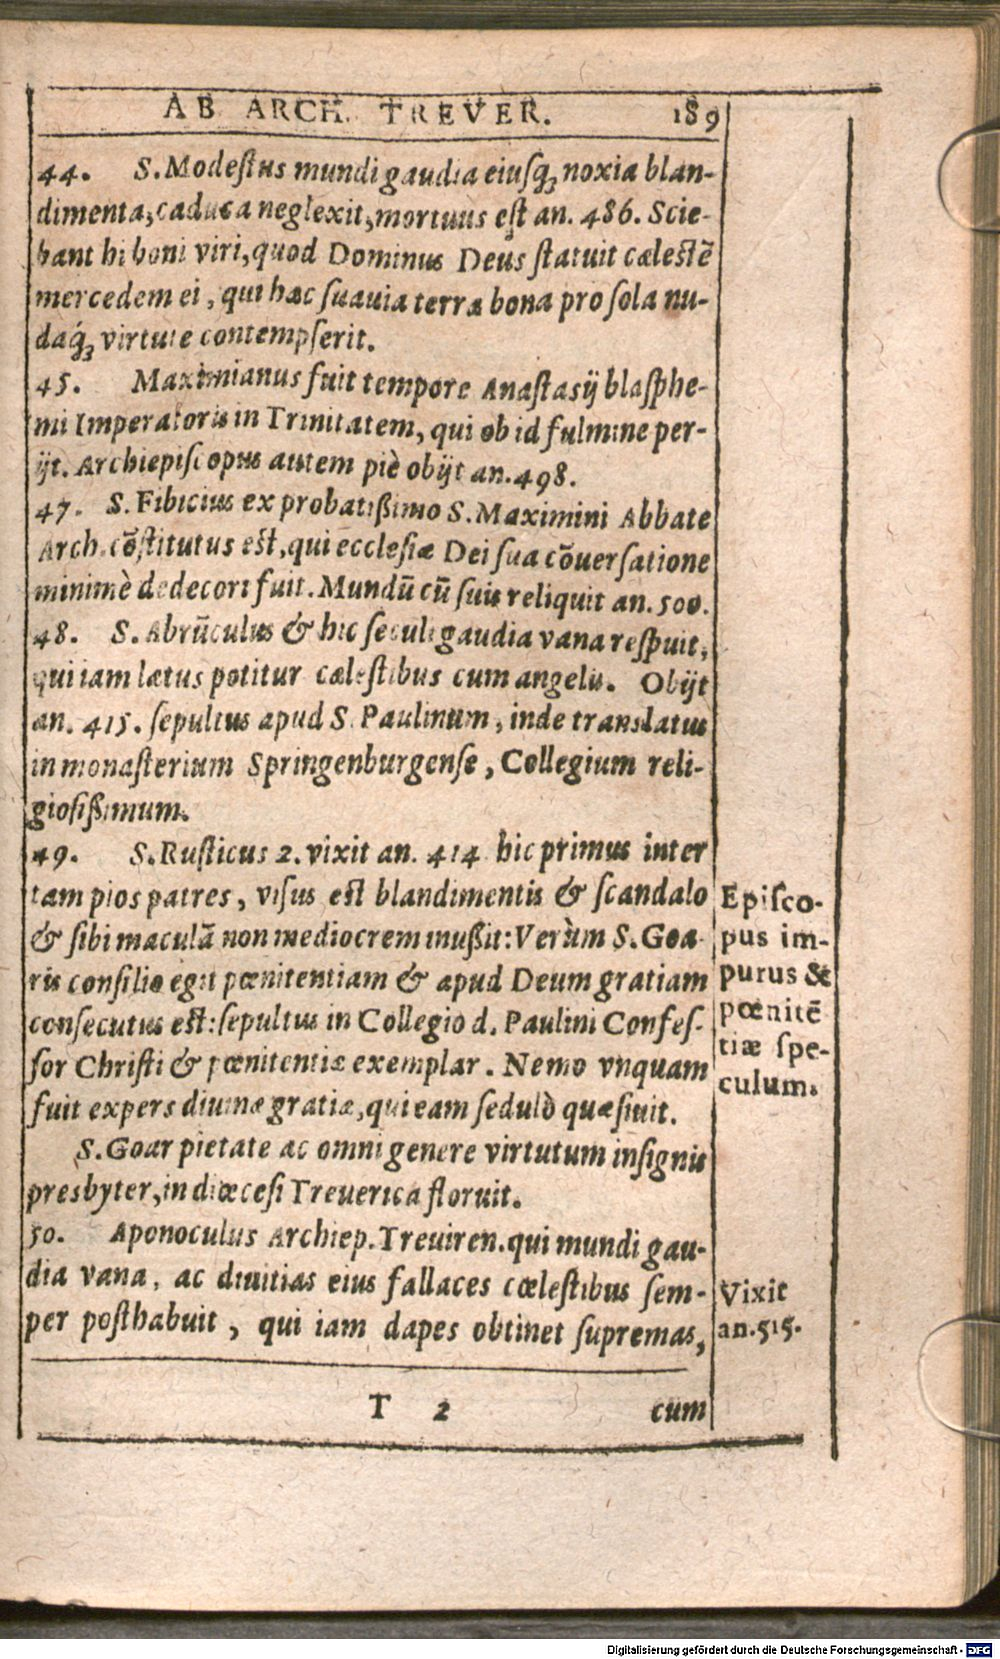 AB ARCH. TREVER. 189
44. S. Modeſtus mundi gaudia eiuſq́; noxia blan-
dimenta, caduca neglexit, mortuus eſt an. 486. Scie-
bant hi boni viri, quod Dominus Deus ſtatuit cæleſtē
mercedem ei, qui hæc ſuauia terræ bona pro ſola nu-
daq́; virtute contempſerit.
45. Maximianus fuit tempore Anaſtasij blaſphe-
mi Imperatoris in Trinitatem, qui ob id fulmine per-
ijt. Archiepiſcopus autem piè obijt an. 498.
47. S. Fibicius ex probatißimo S. Maximini Abbate
Arch. cōſtitutus eſt, qui eccleſiæ Dei ſua cōuerſatione
minimè dedecori fuit. Mundū cū ſuis reliquit an. 500.
48. S. Abrūculus & hic ſeculi gaudia vana reſpuit,
qui iam lætus potitur cæleſtibus cum angelis. Obijt
an. 415. ſepultus apud S. Paulinum, inde translatus
in monaſterium Springenburgenſe, Collegium reli-
gioſißimum.
49. S. Ruſticus 2. vixit an. 414 hic primus inter
tam pios patres, viſus eſt blandimentis & ſcandalo
& ſibi maculā non mediocrem inußit: Verùm S. Goa-
ris conſilio egit pœnitentiam & apud Deum gratiam
conſecutus eſt: ſepultus in Collegio d. Paulini Confeſ-
ſor Chriſti & pœnitentiæ exemplar. Nemo vnquam
fuit expers diuinæ gratiæ, qui eam ſedulò quæſiuit.
Epiſco-
pus im-
purus &
pœnitē
tiæ ſpe-
culum.
S. Goar pietate ac omni genere virtutum inſignis
presbyter, in diœceſi Treuerica floruit.
50. Aponoculus Archiep. Treuiren. qui mundi gau-
dia vana, ac diuitias eius fallaces cœleſtibus ſem-
per poſthabuit, qui iam dapes obtinet ſupremas,
Vixit
an. 515.
T 2 cum
Digitalisierung gefördert durch die Deutsche Forschungsgemeinschaft - DFG